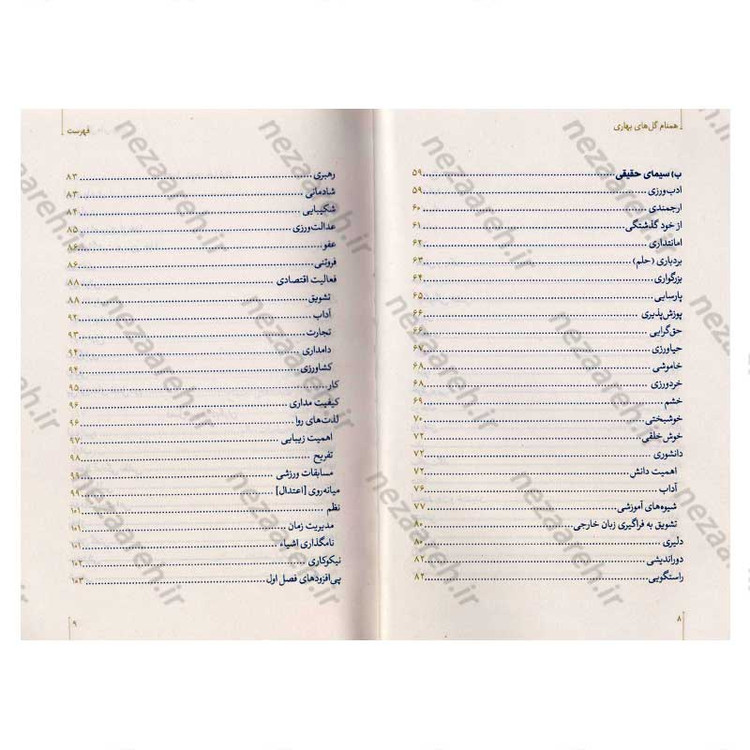 همنام گل‌های بهاری
ب) سیمای حقیقی ........ ۵۹
ادب‌ورزی ........ ۵۹
ارجمندی ........ ۶۰
از خود گذشتگی ........ ۶۱
امانتداری ........ ۶۲
بردباری (حلم) ........ ۶۳
بزرگواری ........ ۶۴
پارسایی ........ ۶۵
پوزش‌پذیری ........ ۶۶
حق‌گرایی ........ ۶۶
حیاورزی ........ ۶۷
خاموشی ........ ۶۸
خردورزی ........ ۶۸
خشم ........ ۶۹
خوشبختی ........ ۷۰
خوش خلقی ........ ۷۲
دانشوری ........ ۷۲
اهمیت دانش ........ ۷۲
آداب ........ ۷۶
شیوه‌های آموزشی ........ ۷۷
تشویق به فراگیری زبان خارجی ........ ۸۰
دلیری ........ ۸۰
دوراندیشی ........ ۸۲
راستگویی ........ ۸۲
۸
فهرست
رهبری ........ ۸۳
شادمانی ........ ۸۳
شکیبایی ........ ۸۴
عدالت‌ورزی ........ ۸۵
عفو ........ ۸۶
فروتنی ........ ۸۶
فعالیت اقتصادی ........ ۸۸
تشویق ........ ۸۸
آداب ........ ۹۲
تجارت ........ ۹۳
دامداری ........ ۹۴
کشاورزی ........ ۹۴
کار ........ ۹۵
کیفیت مداری ........ ۹۶
لذت‌های روا ........ ۹۶
اهمیت زیبایی ........ ۹۷
تفریح ........ ۹۸
مسابقات ورزشی ........ ۹۹
میانه‌روی [اعتدال] ........ ۹۹
نظم ........ ۱۰۱
مدیریت زمان ........ ۱۰۱
نامگذاری اشیاء ........ ۱۰۱
نیکوکاری ........ ۱۰۲
پی‌افزودهای فصل اول ........ ۱۰۳
۹
nezaareh.ir